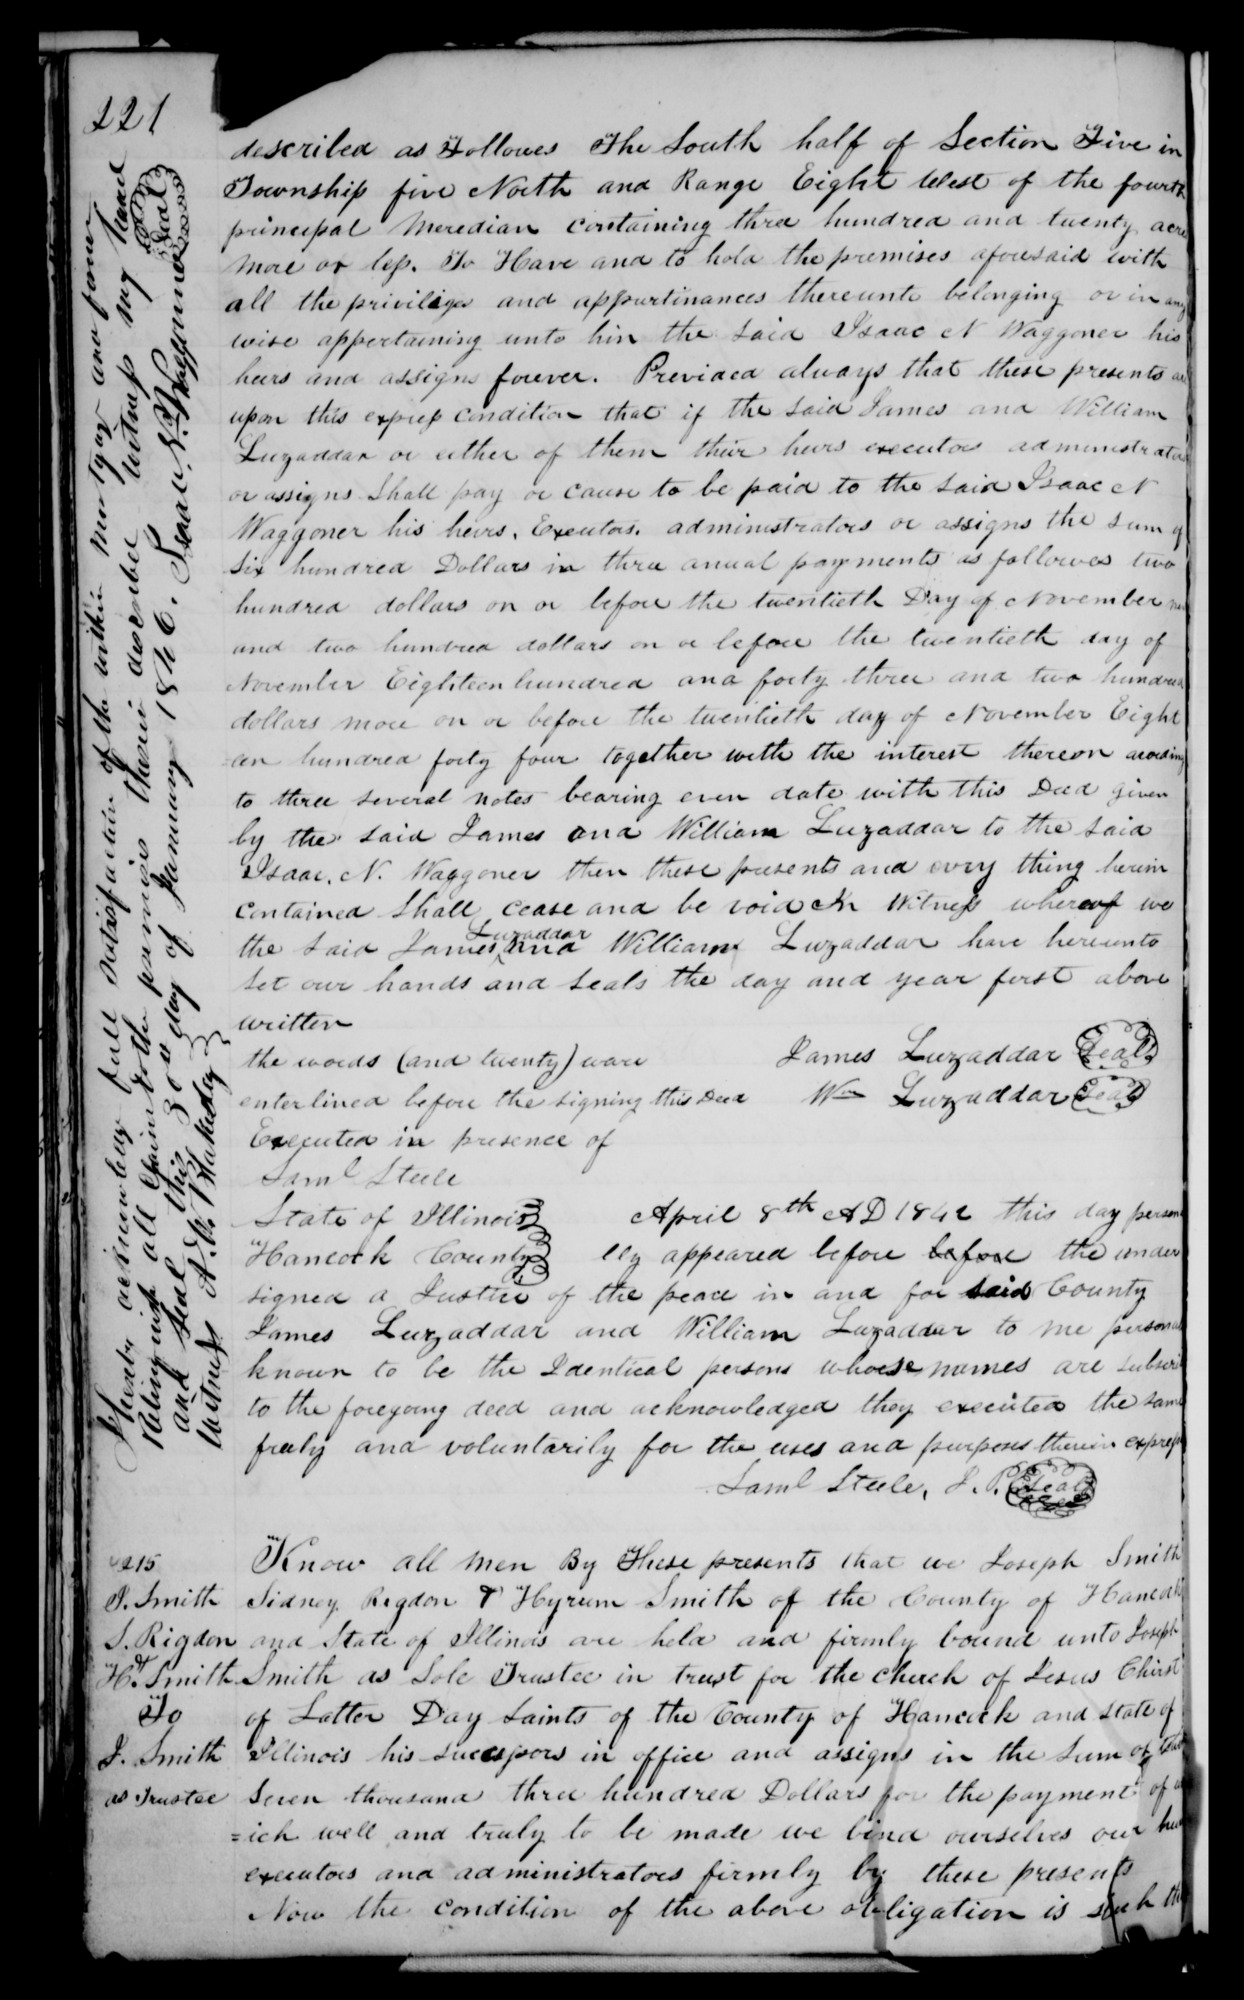 221
described as Followes The South half of Section Five in
Township five North and Range Eight West of the fourth
principal Meredian containing three hundred and twenty acre
more or less. To Have and to hold the premises aforesaid with
all the priviliges and appurtinances thereunto belonging or in any
wise appertaining unto him the said Isaac N Waggoner his
heirs and assigns forever. Provided always that these presents are
upon this express condition that if the said James and William
Luzaddar or either of them their heirs executors administrators
or assigns shall pay or cause to be paid to the said Isaac N
Waggoner his heirs, Executors, administrators or assigns the sum of
six hundred Dollars in three anual payments as followes two
hundred dollars on or before the twentieth Day of November
and two hundred dollars on or before the twentieth day of
November Eighteen hundred and forty three and two hundred
dollars more on or before the twentieth day of November Eight
een hundred forty four together with the interest thereon according
to three several notes bearing even date with this Deed given
by the said James and William Luzaddar to the said
Isaac. N. Waggoner then these presents and every thing herein
contained shall cease and be void In Witness whereof we
the said James Luzaddar and William Luzaddar have hereunto
set our hands and seals the day and year first above
written
the words (and twenty) ware James Luzaddar Seal
enterlined before the signing this Deed Wm Luzaddar Seal
Executed in presence of
Saml Steele
State of Illinois April 8th AD 1842 this day person
Hancock County lly appeared before before the under
signed a Justice of the peace in and for said County
James Luzaddar and William Luzaddar to me personal
known to be the Identical persons whose names are subscri
to the foregoing deed and acknowledged they executed the same
freely and voluntarily for the uses and purposes therein express
Saml Steele, J. P. Seal
I hereby acknowledge full satisfaction of the within Mortgage and forever
Relinquish all Claim to the premises therein described witness my hand
and seal this 30th day of January 1846. Isaac N. Waggoner Seal
Witness
215
J. Smith
S. Rigdon
& H. Smith
To
J. Smith
as Trustee
Know all men By These presents that we Joseph Smith
Sidney Rigdon & Hyrum Smith of the County of Hancock
and State of Illinois are held and firmly bound unto Joseph
Smith as Sole Trustee in trust for the church of Jesus Christ
of Latter Day Saints of the County of Hancock and State of
Illinois his successors in office and assigns in the Sum of
Seven thousand three hundred Dollars for the payment of
=ich well and truly to be made we bind ourselves our
executors and administrators firmly by these presents
Now the condition of the above obligation is such